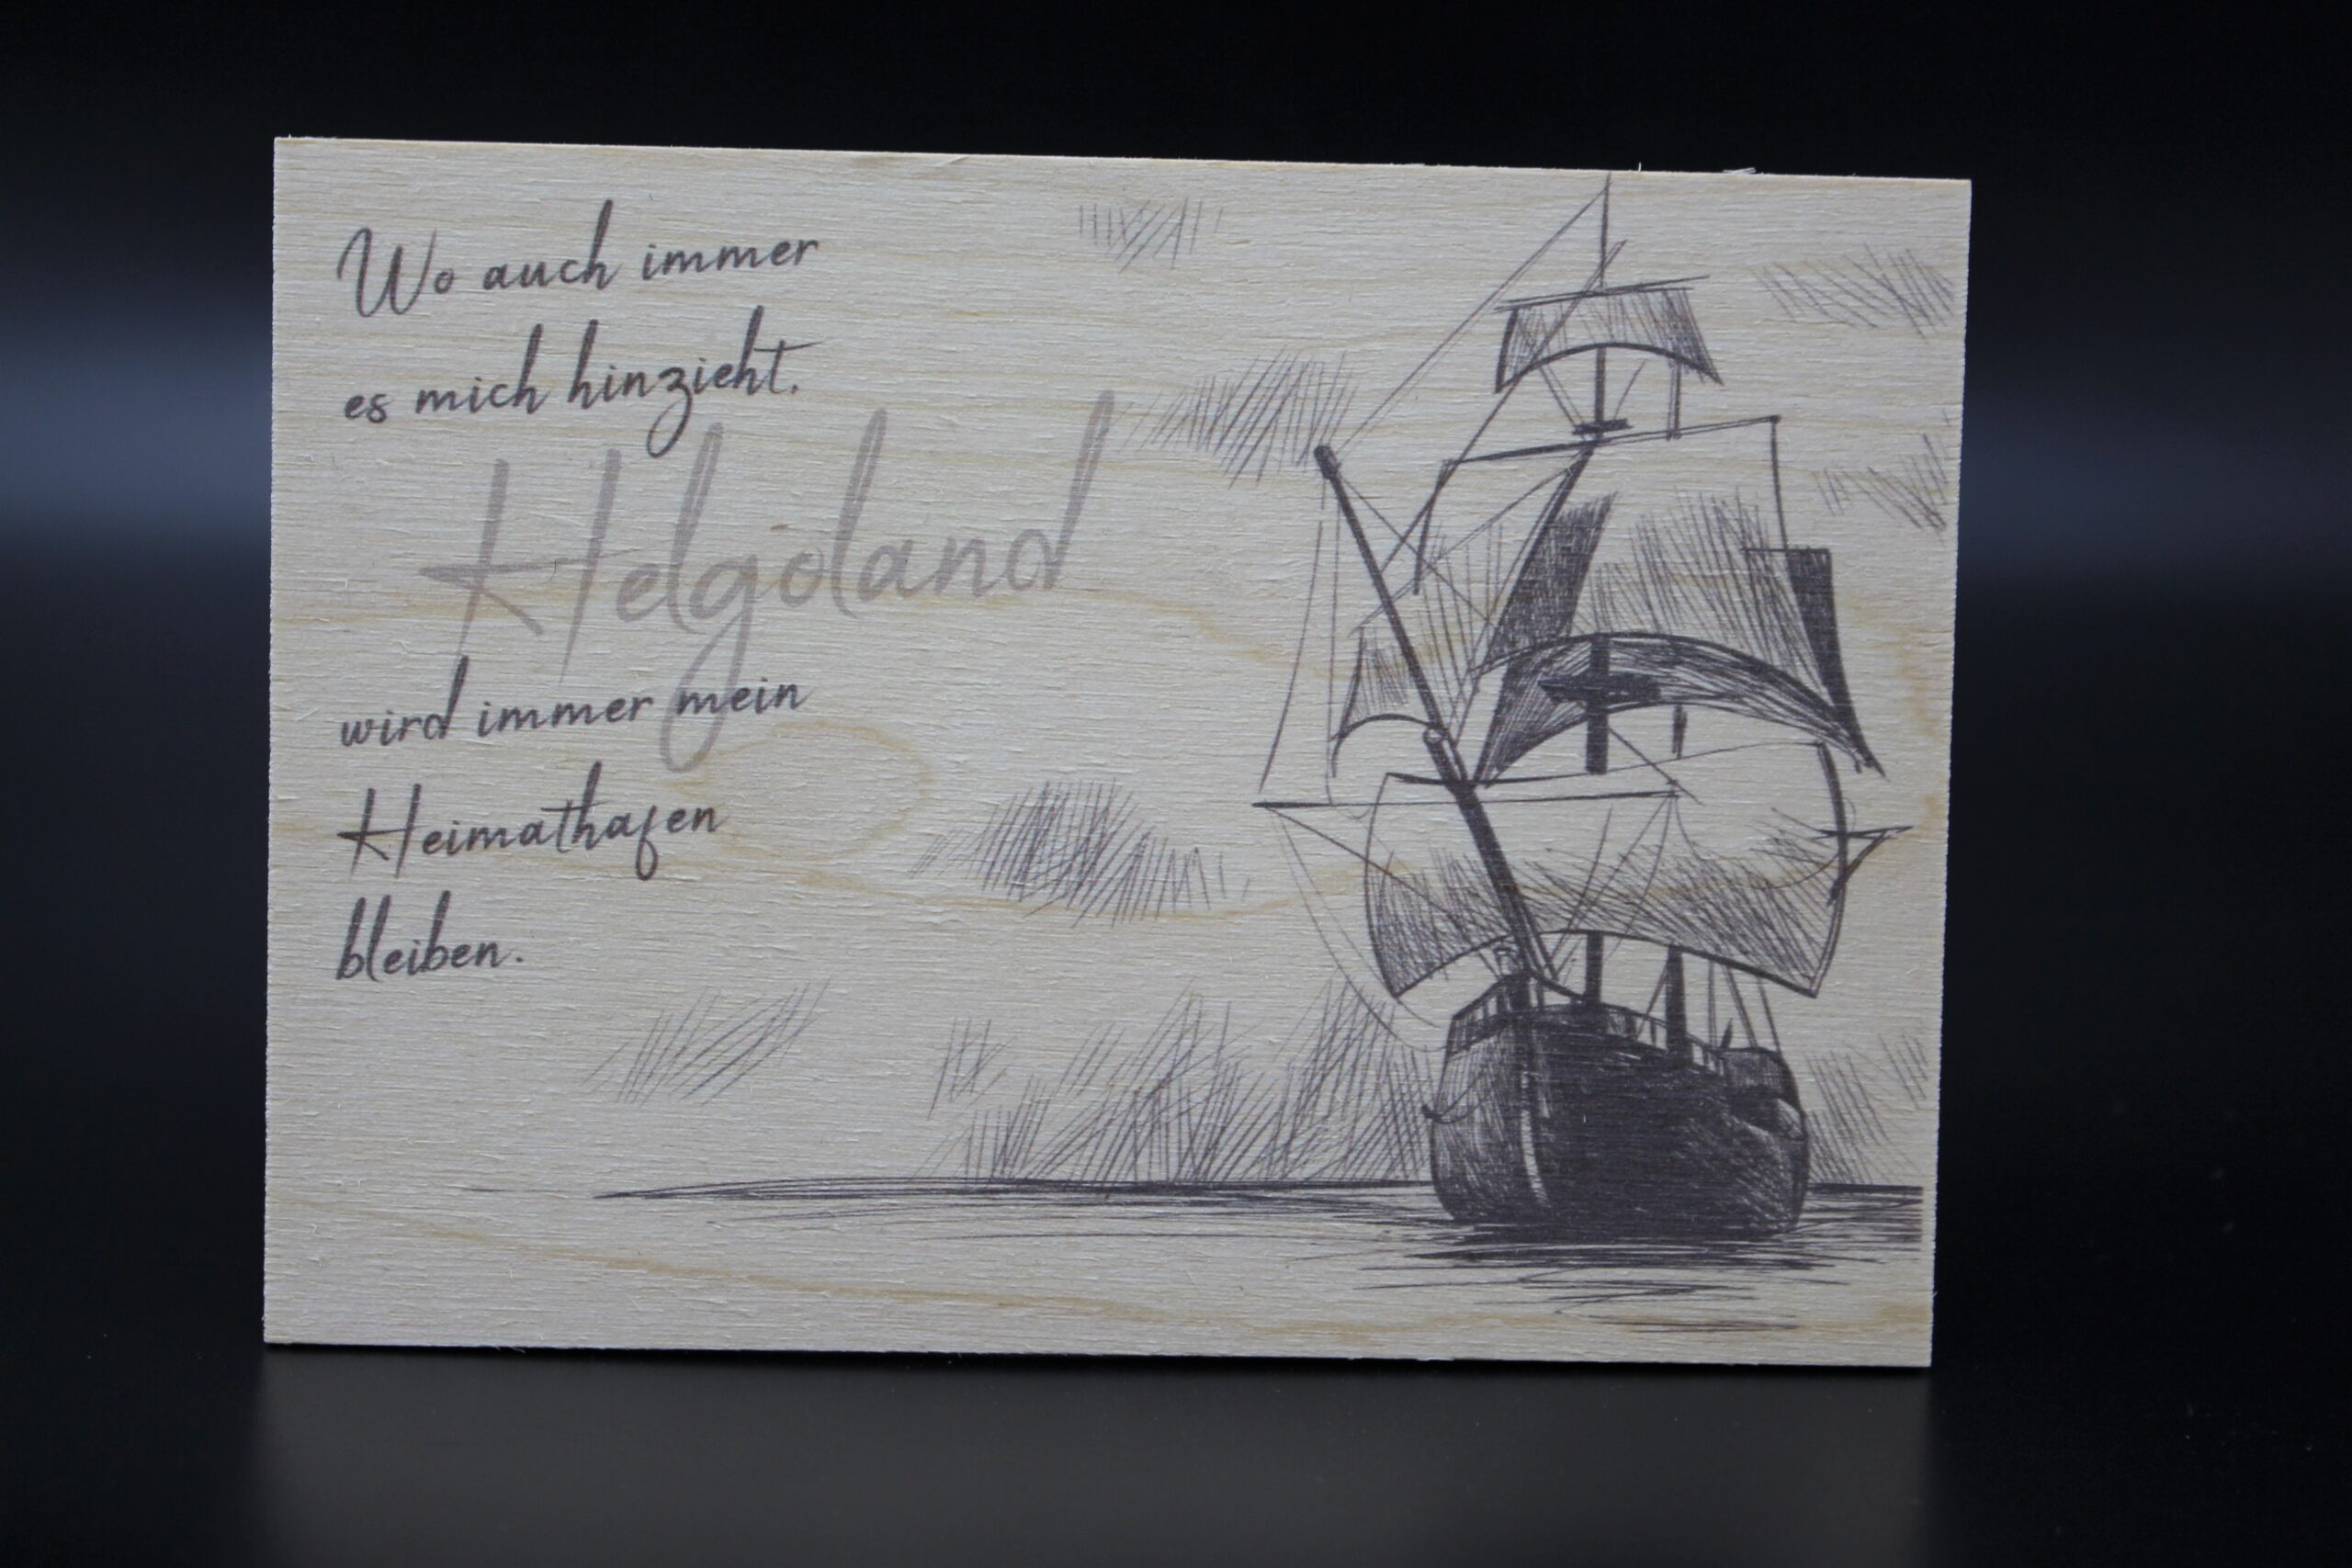 Wo auch immer
es mich hinzieht,
Helgoland
wird immer mein
Heimathafen
bleiben.